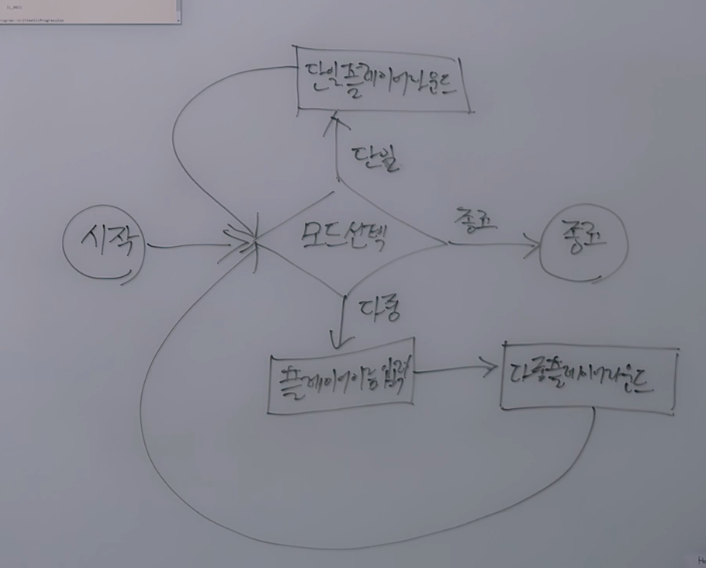 단일플레이어라운드
단일
시작
모드선택
종료
종료
다중
다중플레이어라운드